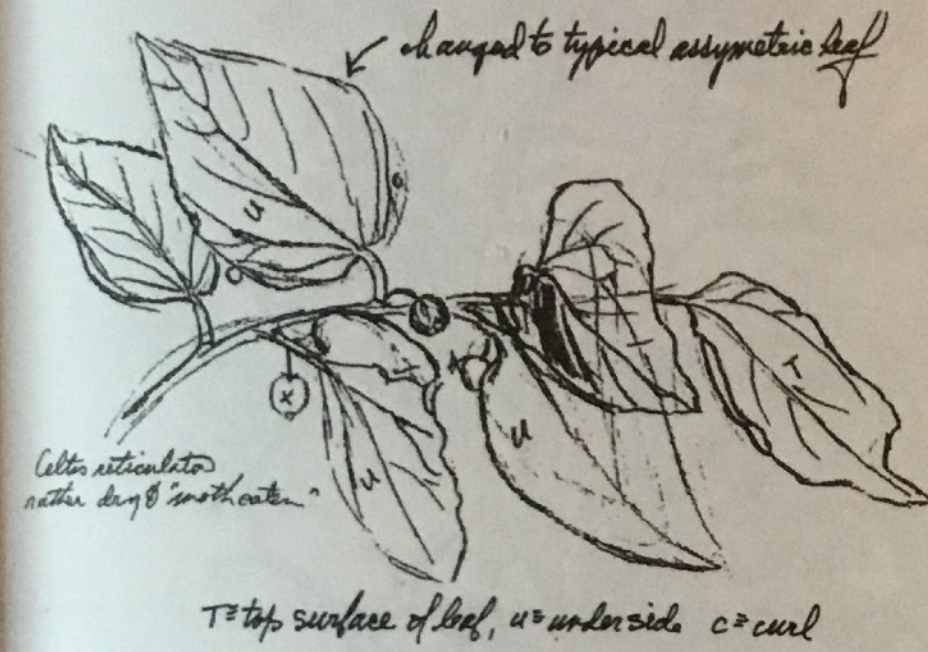 changed to typical assymetric leaf
U
c
c
T
T
x
U
U
Celtis reticulata
rather dry & "moth eaten"
T≡top surface of leaf, u≡underside c≡curl